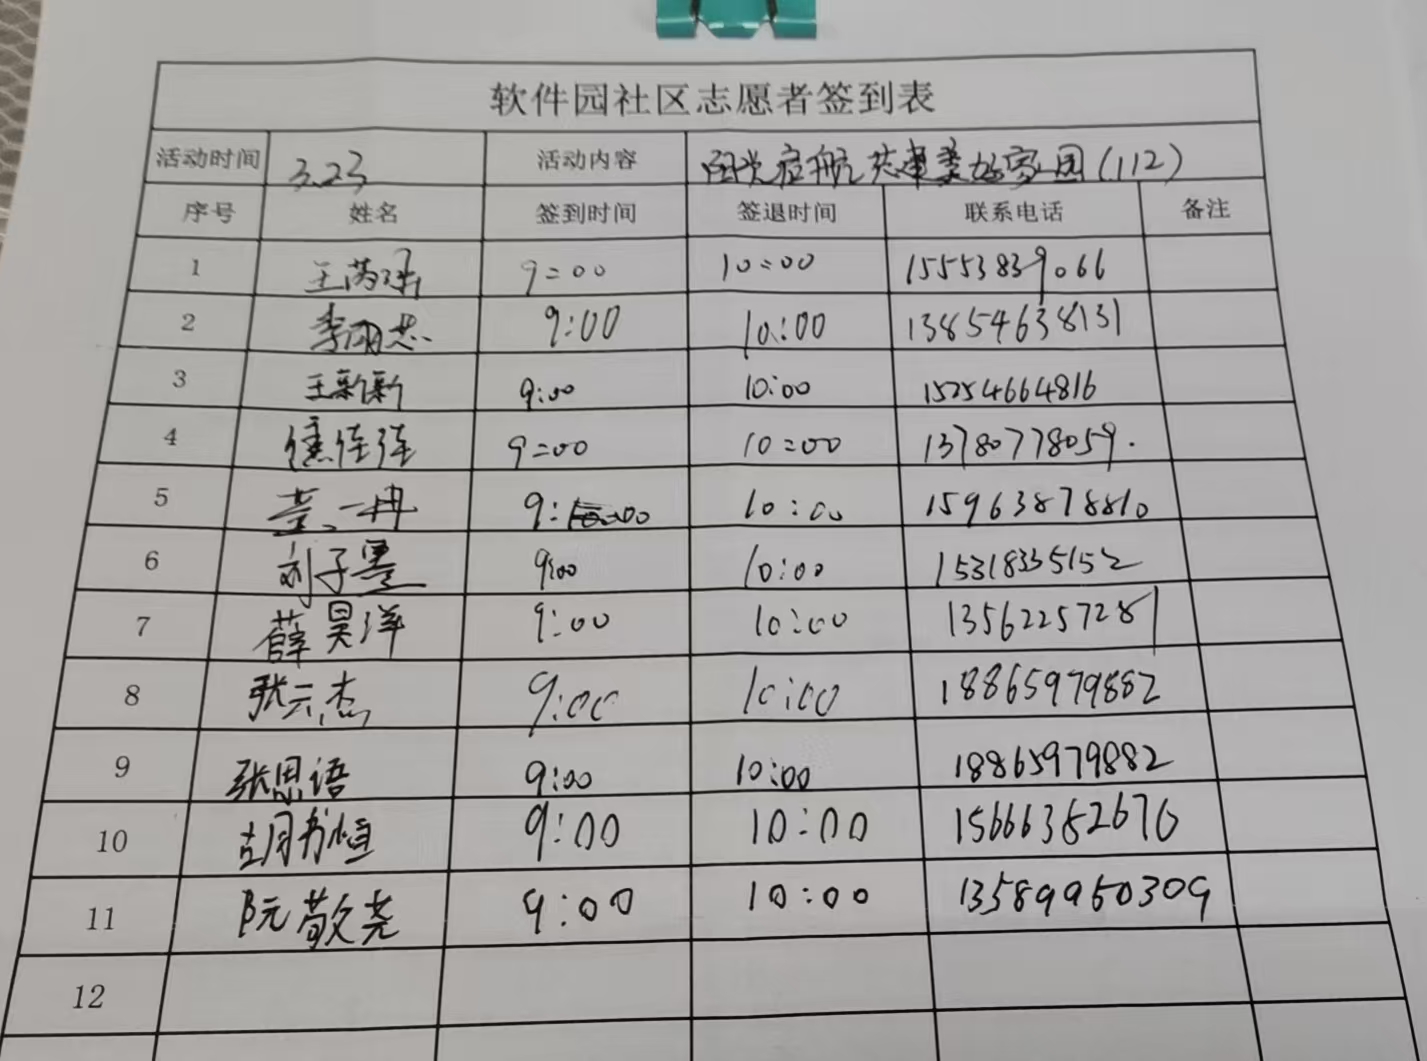 软件园社区志愿者签到表
活动时间 3.23 活动内容 启航 共建美好家园(112)
序号 姓名 签到时间 签退时间 联系电话 备注
1 王芮 9:00 10:00 15553839066
2 李 9:00 10:00 13854638131
3 王新新 9:00 10:00 15254664816
4 焦佳佳 9:00 10:00 13780778059.
5 董一冉 9:00 10:00 15963878810
6 刘子墨 9:00 10:00 15318335152
7 薛昊洋 9:00 10:00 13562257281
8 张云杰 9:00 10:00 18865979882
9 张思语 9:00 10:00 18865979882
10 胡书恒 9:00 10:00 15666382676
11 阮敬尧 9:00 10:00 13589960309
12